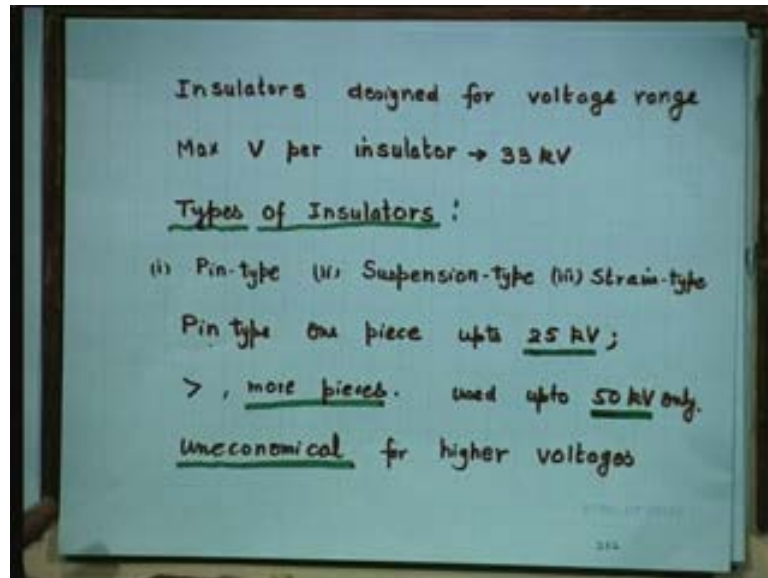 Insulators designed for voltage range
Max V per insulator → 33 kV
Types of Insulators :
(i) Pin-type (ii) Suspension-type (iii) Strain-type
Pin type one piece upto 25 kV ;
> , more pieces. used upto 50 kV only.
Uneconomical for higher voltages